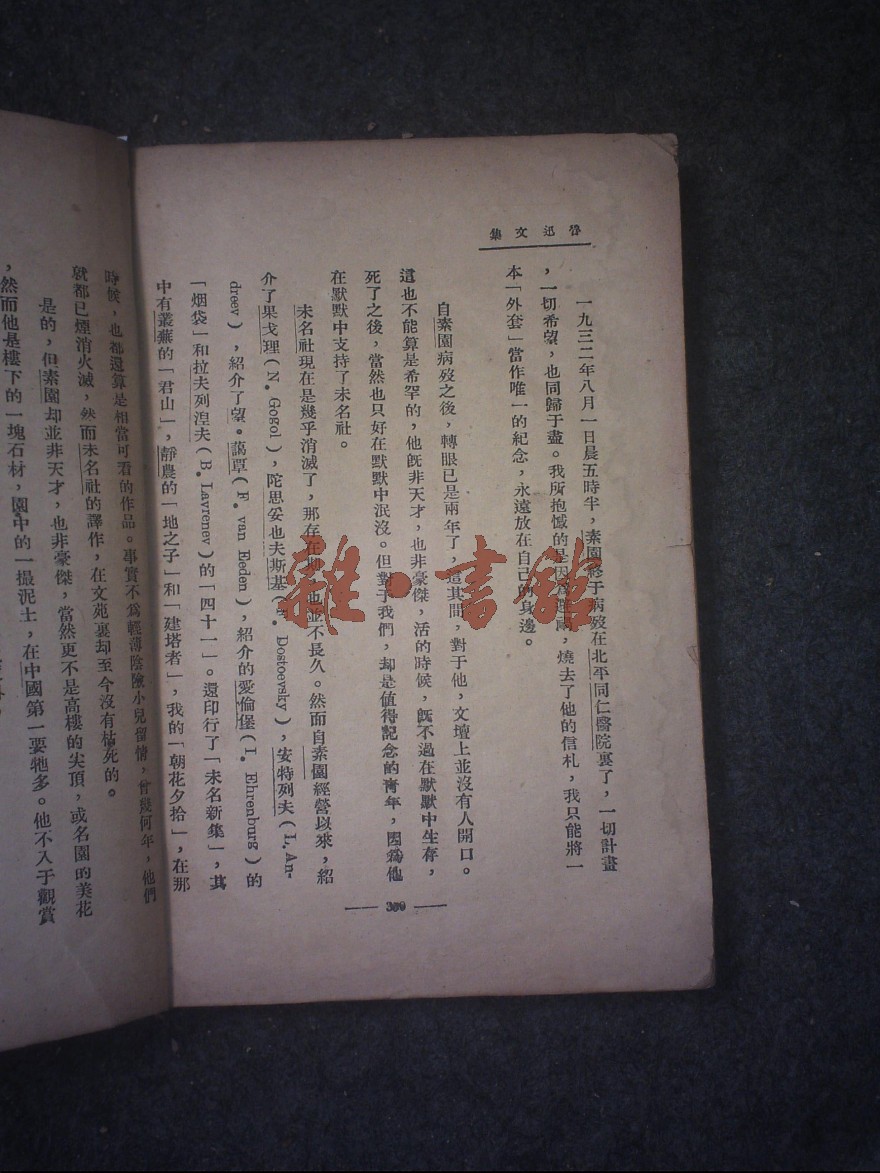 魯迅文集
一九三二年八月一日晨五時半，素園終于病歿在北平同仁醫院裏了，一切計畫
，一切希望，也同歸于盡。我所抱憾的是因爲避禍，燒去了他的信札，我只能將一
本「外套」當作唯一的紀念，永遠放在自己的身邊。
自素園病歿之後，轉眼已是兩年了，這其間，對于他，文壇上並沒有人開口。
這也不能算是希罕的，他旣非天才，也非豪傑，活的時候，旣不過在默默中生存，
死了之後，當然也只好在默默中泯沒。但對于我們，却是値得記念的青年，因爲他
在默默中支持了未名社。
未名社現在是幾乎消滅了，那存在期，也並不長久。然而自素園經營以來，紹
介了果戈理（N. Gogol），陀思妥也夫斯基（F. Dostoevsky），安特列夫（L. An-
dreev），紹介了望・藹覃（F. van Eeden），紹介的愛倫堡（I. Ehrenburg）的
「烟袋」和拉夫列涅夫（B. Lavrenev）的「四十一」。還印行了「未名新集」，其
中有叢蕪的「君山」，靜農的「地之子」和「建塔者」，我的「朝花夕拾」，在那
時候，也都還算是相當可看的作品。事實不爲輕薄陰險小兒留情，曾幾何年，他們
就都已煙消火滅，然而未名社的譯作，在文苑裏却至今沒有枯死的。
是的，但素園却並非天才，也非豪傑，當然更不是高樓的尖頂，或名園的美花
，然而他是樓下的一塊石材，園中的一撮泥土，在中國第一要牠多。他不入于觀賞
— 309 —
雜・書館